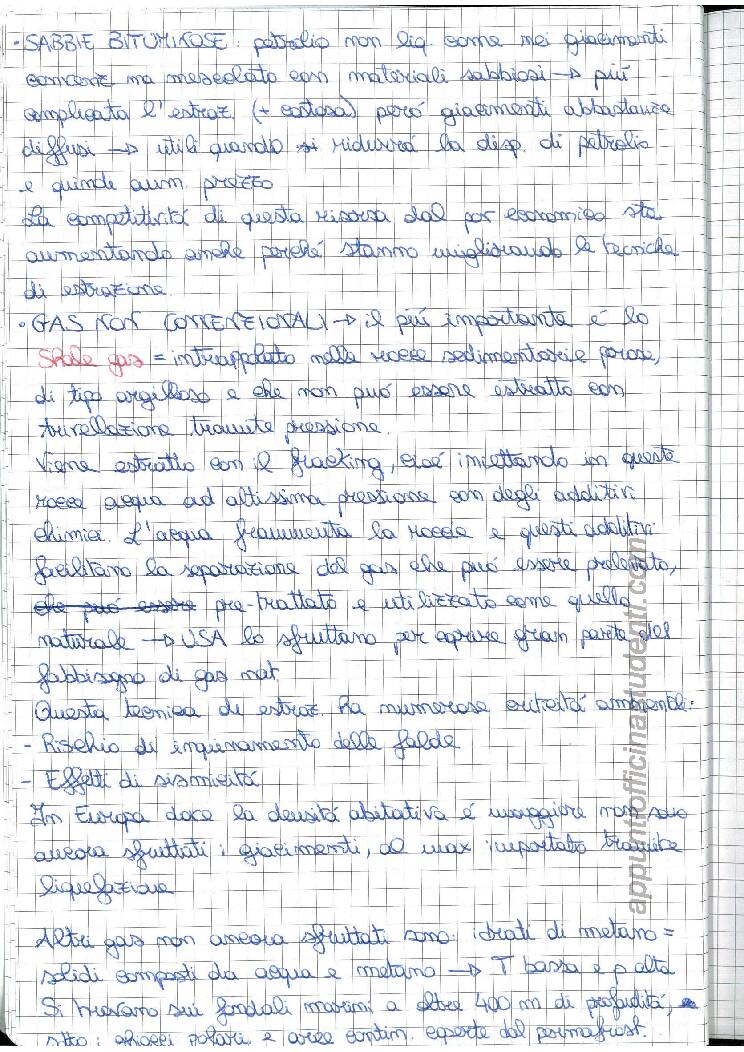 · SABBIE BITUMINOSE: petrolio non liq. come nei giacimenti
convenz ma mescolato con materiali sabbiosi → più
complicata l'estraz. (+ costosa) però giacimenti abbastanza
diffusi → utili quando si ridurrà la disp. di petrolio
e quindi aum. prezzo
La competitività di questa risorsa dal pov economico sta
aumentando anche perché stanno migliorando le tecniche
di estrazione.
· GAS NON CONVENZIONALI → il più importante è lo
Shale gas = intrappolato nelle rocce sedimentarie porose,
di tipo argilloso e che non può essere estratto con
trivellazione tramite pressione.
Viene estratto con il fracking, cioè iniettando in queste
rocce acqua ad altissima pressione con degli additivi
chimici. L'acqua frammenta la roccia e questi additivi
facilitano la separazione del gas che può essere prelevato,
che può essere pre-trattato e utilizzato come quello
naturale → USA lo sfruttano per coprire gran parte del
fabbisogno di gas nat.
Questa tecnica di estraz. ha numerose criticità ambientali:
- Rischio di inquinamento delle falde
- Effetti di sismicità
In Europa dove la densità abitativa è maggiore non sono
ancora sfruttati i giacimenti, al max importato tramite
liquefazione
Altri gas non ancora sfruttati sono: idrati di metano =
solidi composti da acqua e metano → T bassa e p alta
Si trovano sui fondali marini a oltre 400 m di profondità,
sotto i ghiacci polari e aree contin. coperte dal permafrost.
appuntiofficinastudenti.com